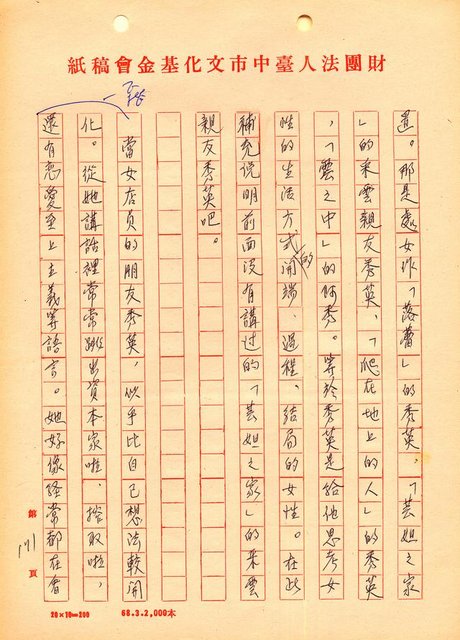 財團法人臺中市文化基金會稿紙
置。那是處女作「落蕾」的秀英,「芸姐之家
」的采雲親友秀英、「爬在地上的人」的秀英
,「雲之中」的阿秀。等於秀英是給他思考女
性的生活方式的開端、過程、結局的女性。在此
補充說明前面沒有講過的「芸姐之家」的采雲
親友秀英吧。
當女店員的朋友秀英,似乎比自己想法較開
化。從她講話裡常常跳出資本家啦、搾取啦,
還有戀愛至上主義等語言。她好像經常都在看
第 頁
20×10=200
68.3.2,000本